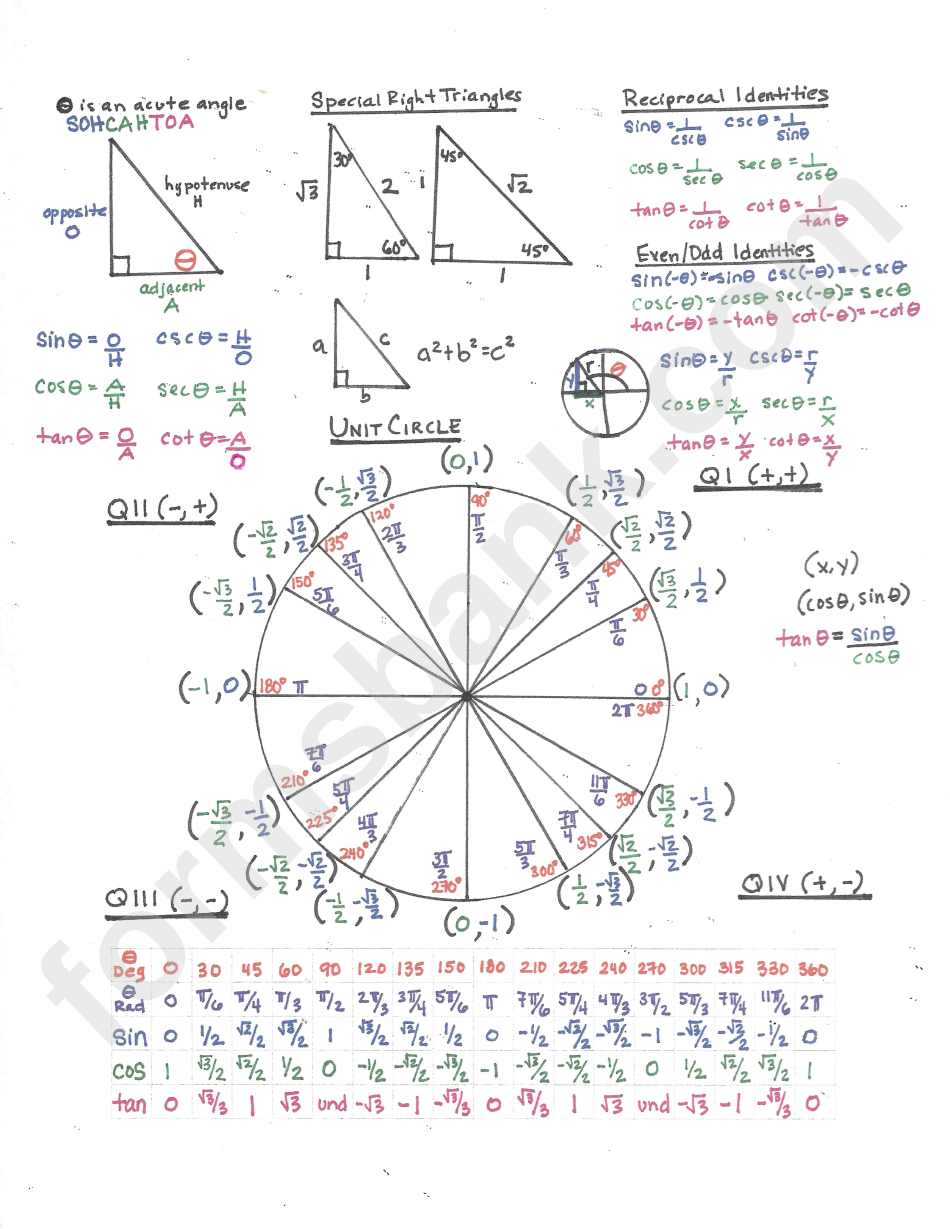 θ is an acute angle
SOHCAHTOA
opposite
O
hypotenuse
H
θ
adjacent
A
sinθ = O/H cscθ = H/O
cosθ = A/H secθ = H/A
tanθ = O/A cotθ = A/O
Special Right Triangles
30° √3 2 60° 1
45° 1 √2 45° 1
a c b
a²+b²=c²
Reciprocal Identities
sinθ = 1/cscθ cscθ = 1/sinθ
cosθ = 1/secθ secθ = 1/cosθ
tanθ = 1/cotθ cotθ = 1/tanθ
Even/Odd Identities
sin(-θ)=-sinθ csc(-θ)=-cscθ
cos(-θ)=cosθ sec(-θ)=secθ
tan(-θ)=-tanθ cot(-θ)=-cotθ
r θ y x
sinθ = y/r cscθ = r/y
cosθ = x/r secθ = r/x
tanθ = y/x cotθ = x/y
UNIT CIRCLE
QI (+,+)
QII (-,+)
QIII (-,-)
QIV (+,-)
(x,y)
(cosθ, sinθ)
tanθ = sinθ/cosθ
(0,1) 90° π/2
(1/2, √3/2) 60° π/3
(√2/2, √2/2) 45° π/4
(√3/2, 1/2) 30° π/6
(1,0) 0 0°
2π 360°
(-1/2, √3/2) 120° 2π/3
(-√2/2, √2/2) 135° 3π/4
(-√3/2, 1/2) 150° 5π/6
(-1,0) 180° π
(-√3/2, -1/2) 210° 7π/6
(-√2/2, -√2/2) 225° 5π/4
(-1/2, -√3/2) 240° 4π/3
(0,-1) 270° 3π/2
(1/2, -√3/2) 300° 5π/3
(√2/2, -√2/2) 315° 7π/4
(√3/2, -1/2) 330° 11π/6
θ Deg 0 30 45 60 90 120 135 150 180 210 225 240 270 300 315 330 360
θ Rad 0 π/6 π/4 π/3 π/2 2π/3 3π/4 5π/6 π 7π/6 5π/4 4π/3 3π/2 5π/3 7π/4 11π/6 2π
sin 0 1/2 √2/2 √3/2 1 √3/2 √2/2 1/2 0 -1/2 -√2/2 -√3/2 -1 -√3/2 -√2/2 -1/2 0
cos 1 √3/2 √2/2 1/2 0 -1/2 -√2/2 -√3/2 -1 -√3/2 -√2/2 -1/2 0 1/2 √2/2 √3/2 1
tan 0 √3/3 1 √3 und -√3 -1 -√3/3 0 √3/3 1 √3 und -√3 -1 -√3/3 0
formsbank.com